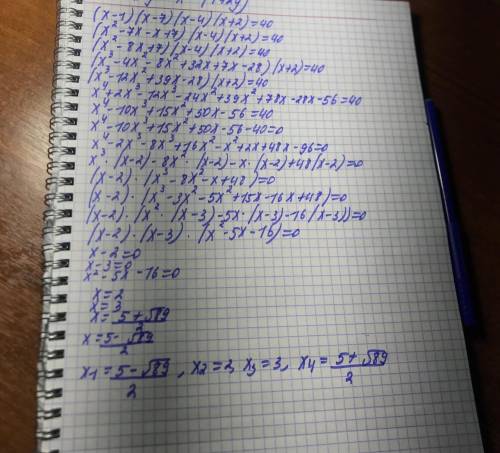 (x-1)(x-7)(x-4)(x+2)=40
(x²-7x-x+7)(x-4)(x+2)=40
(x²-8x+7)(x-4)(x+2)=40
(x³-4x²-8x²+32x+7x-28)(x+2)=40
(x³-12x²+39x-28)(x+2)=40
x⁴+2x³-12x³-24x²+39x²+78x-28x-56=40
x⁴-10x³+15x²+50x-56=40
x⁴-10x³+15x²+50x-56-40=0
x⁴-2x³-8x³+16x²-x²+2x+48x-96=0
x³·(x-2)-8x²·(x-2)-x·(x-2)+48(x-2)=0
(x-2)·(x³-8x²-x+48)=0
(x-2)·(x³-3x²-5x²+15x-16x+48)=0
(x-2)·(x²·(x-3)-5x·(x-3)-16(x-3))=0
(x-2)·(x-3)·(x²-5x-16)=0
x-2=0
x-3=0
x²-5x-16=0
x=2
x=3
x=5+√89/2
x=5-√89/2
x1=5-√89/2, x2=2, x3=3, x4=5+√89/2